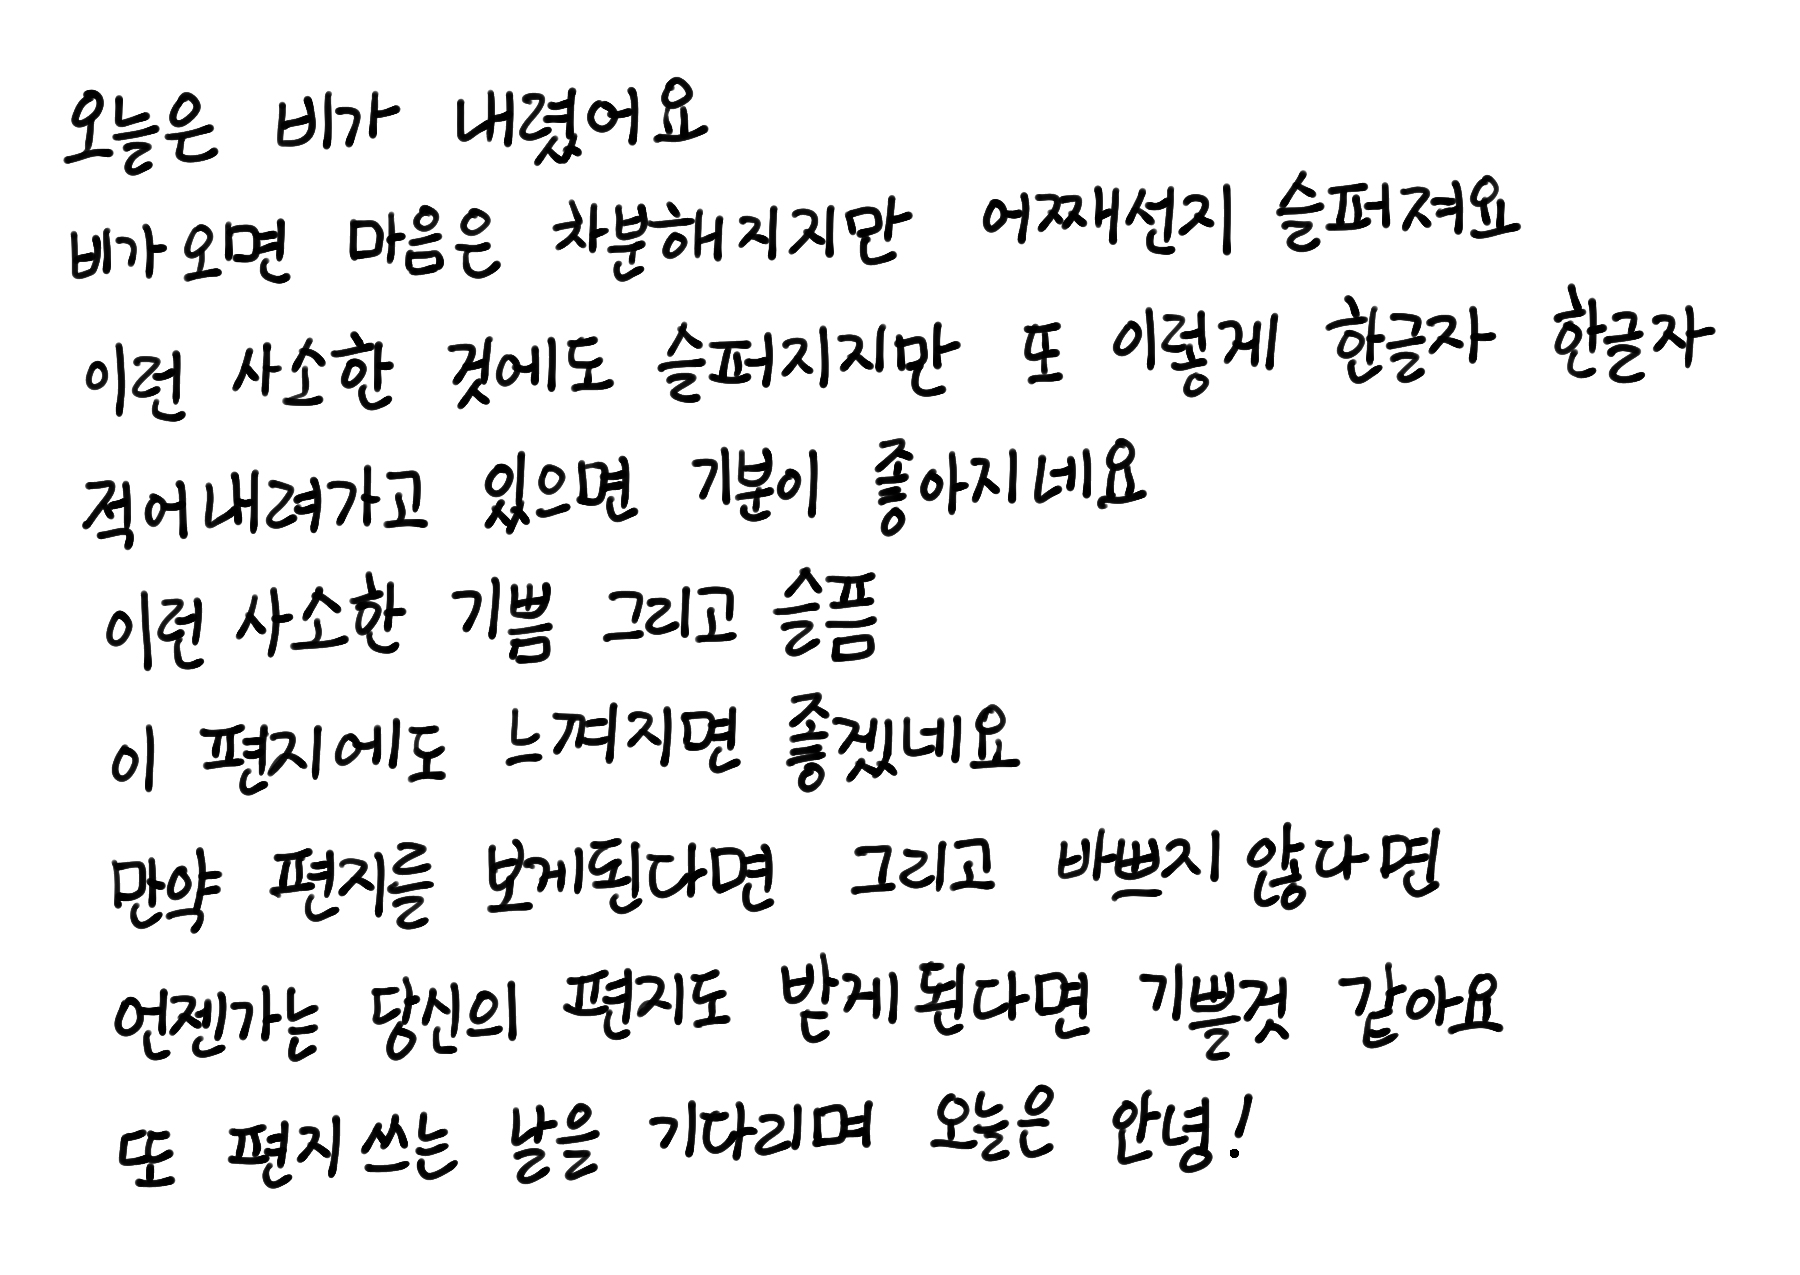 오늘은 비가 내렸어요
비가 오면 마음은 차분해지지만 어째선지 슬퍼져요
이런 사소한 것에도 슬퍼지지만 또 이렇게 한글자 한글자
적어내려가고 있으면 기분이 좋아지네요
이런 사소한 기쁨 그리고 슬픔
이 편지에도 느껴지면 좋겠네요
만약 편지를 보게된다면 그리고 바쁘지 않다면
언젠가는 당신의 편지도 받게 된다면 기쁠것 같아요
또 편지 쓰는 날을 기다리며 오늘은 안녕!